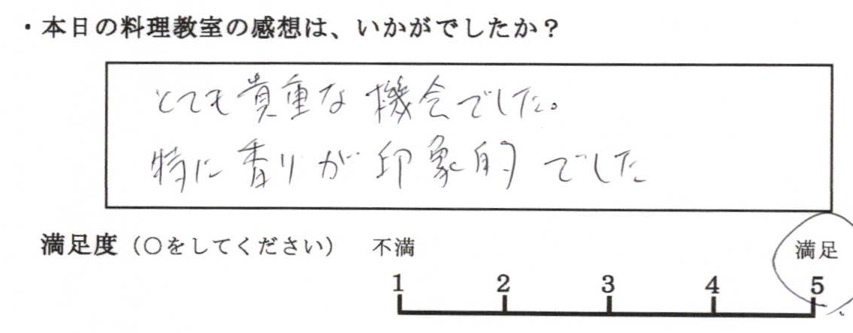 ・本日の料理教室の感想は、いかがでしたか？
とても貴重な機会でした。
特に香りが印象的でした
満足度（○をしてください） 不満 満足
1 2 3 4 5